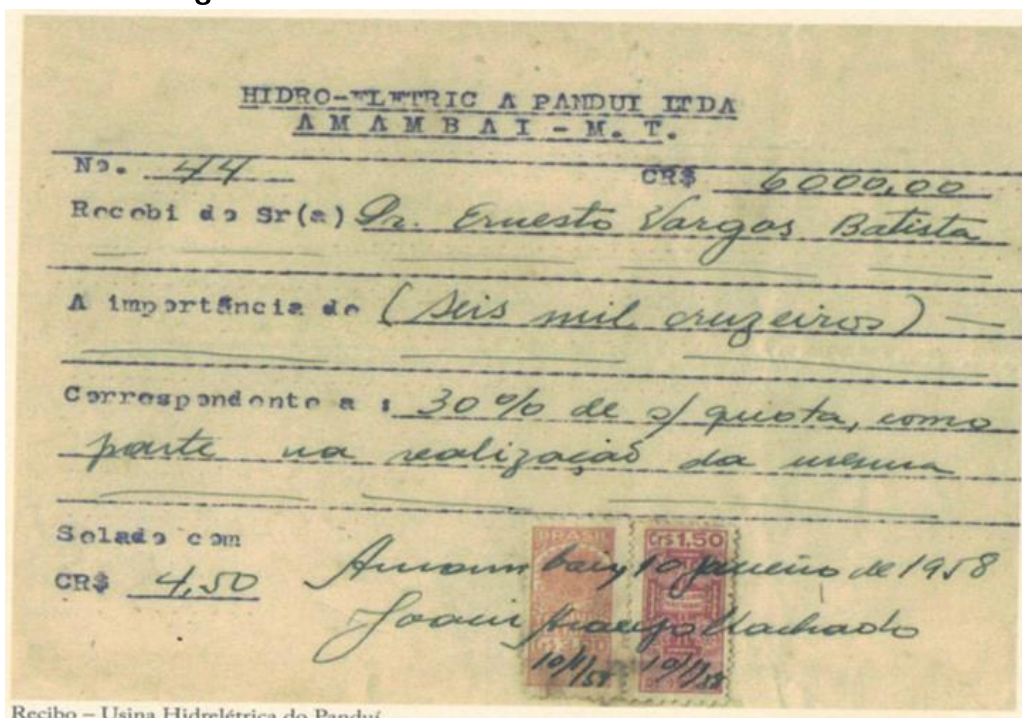 HIDRO-ELETRIC A PANDUI LTDA
AMAMBAI - M. T.
No. 44 CR$ 6000,00
Recebi do Sr(a) Dr. Ernesto Vargas Batista
A importância de (Seis mil cruzeiros)
Correspondente a : 30% de s/ quota, como
parte na realização da mesma
Selado com
CR$ 4,50
Amambay, 10 janeiro de 1958
Araujo Machado
BRASIL
Cr$1,50
10/1/58 10/1/58
Recibo – Usina Hidrelétrica do Panduí